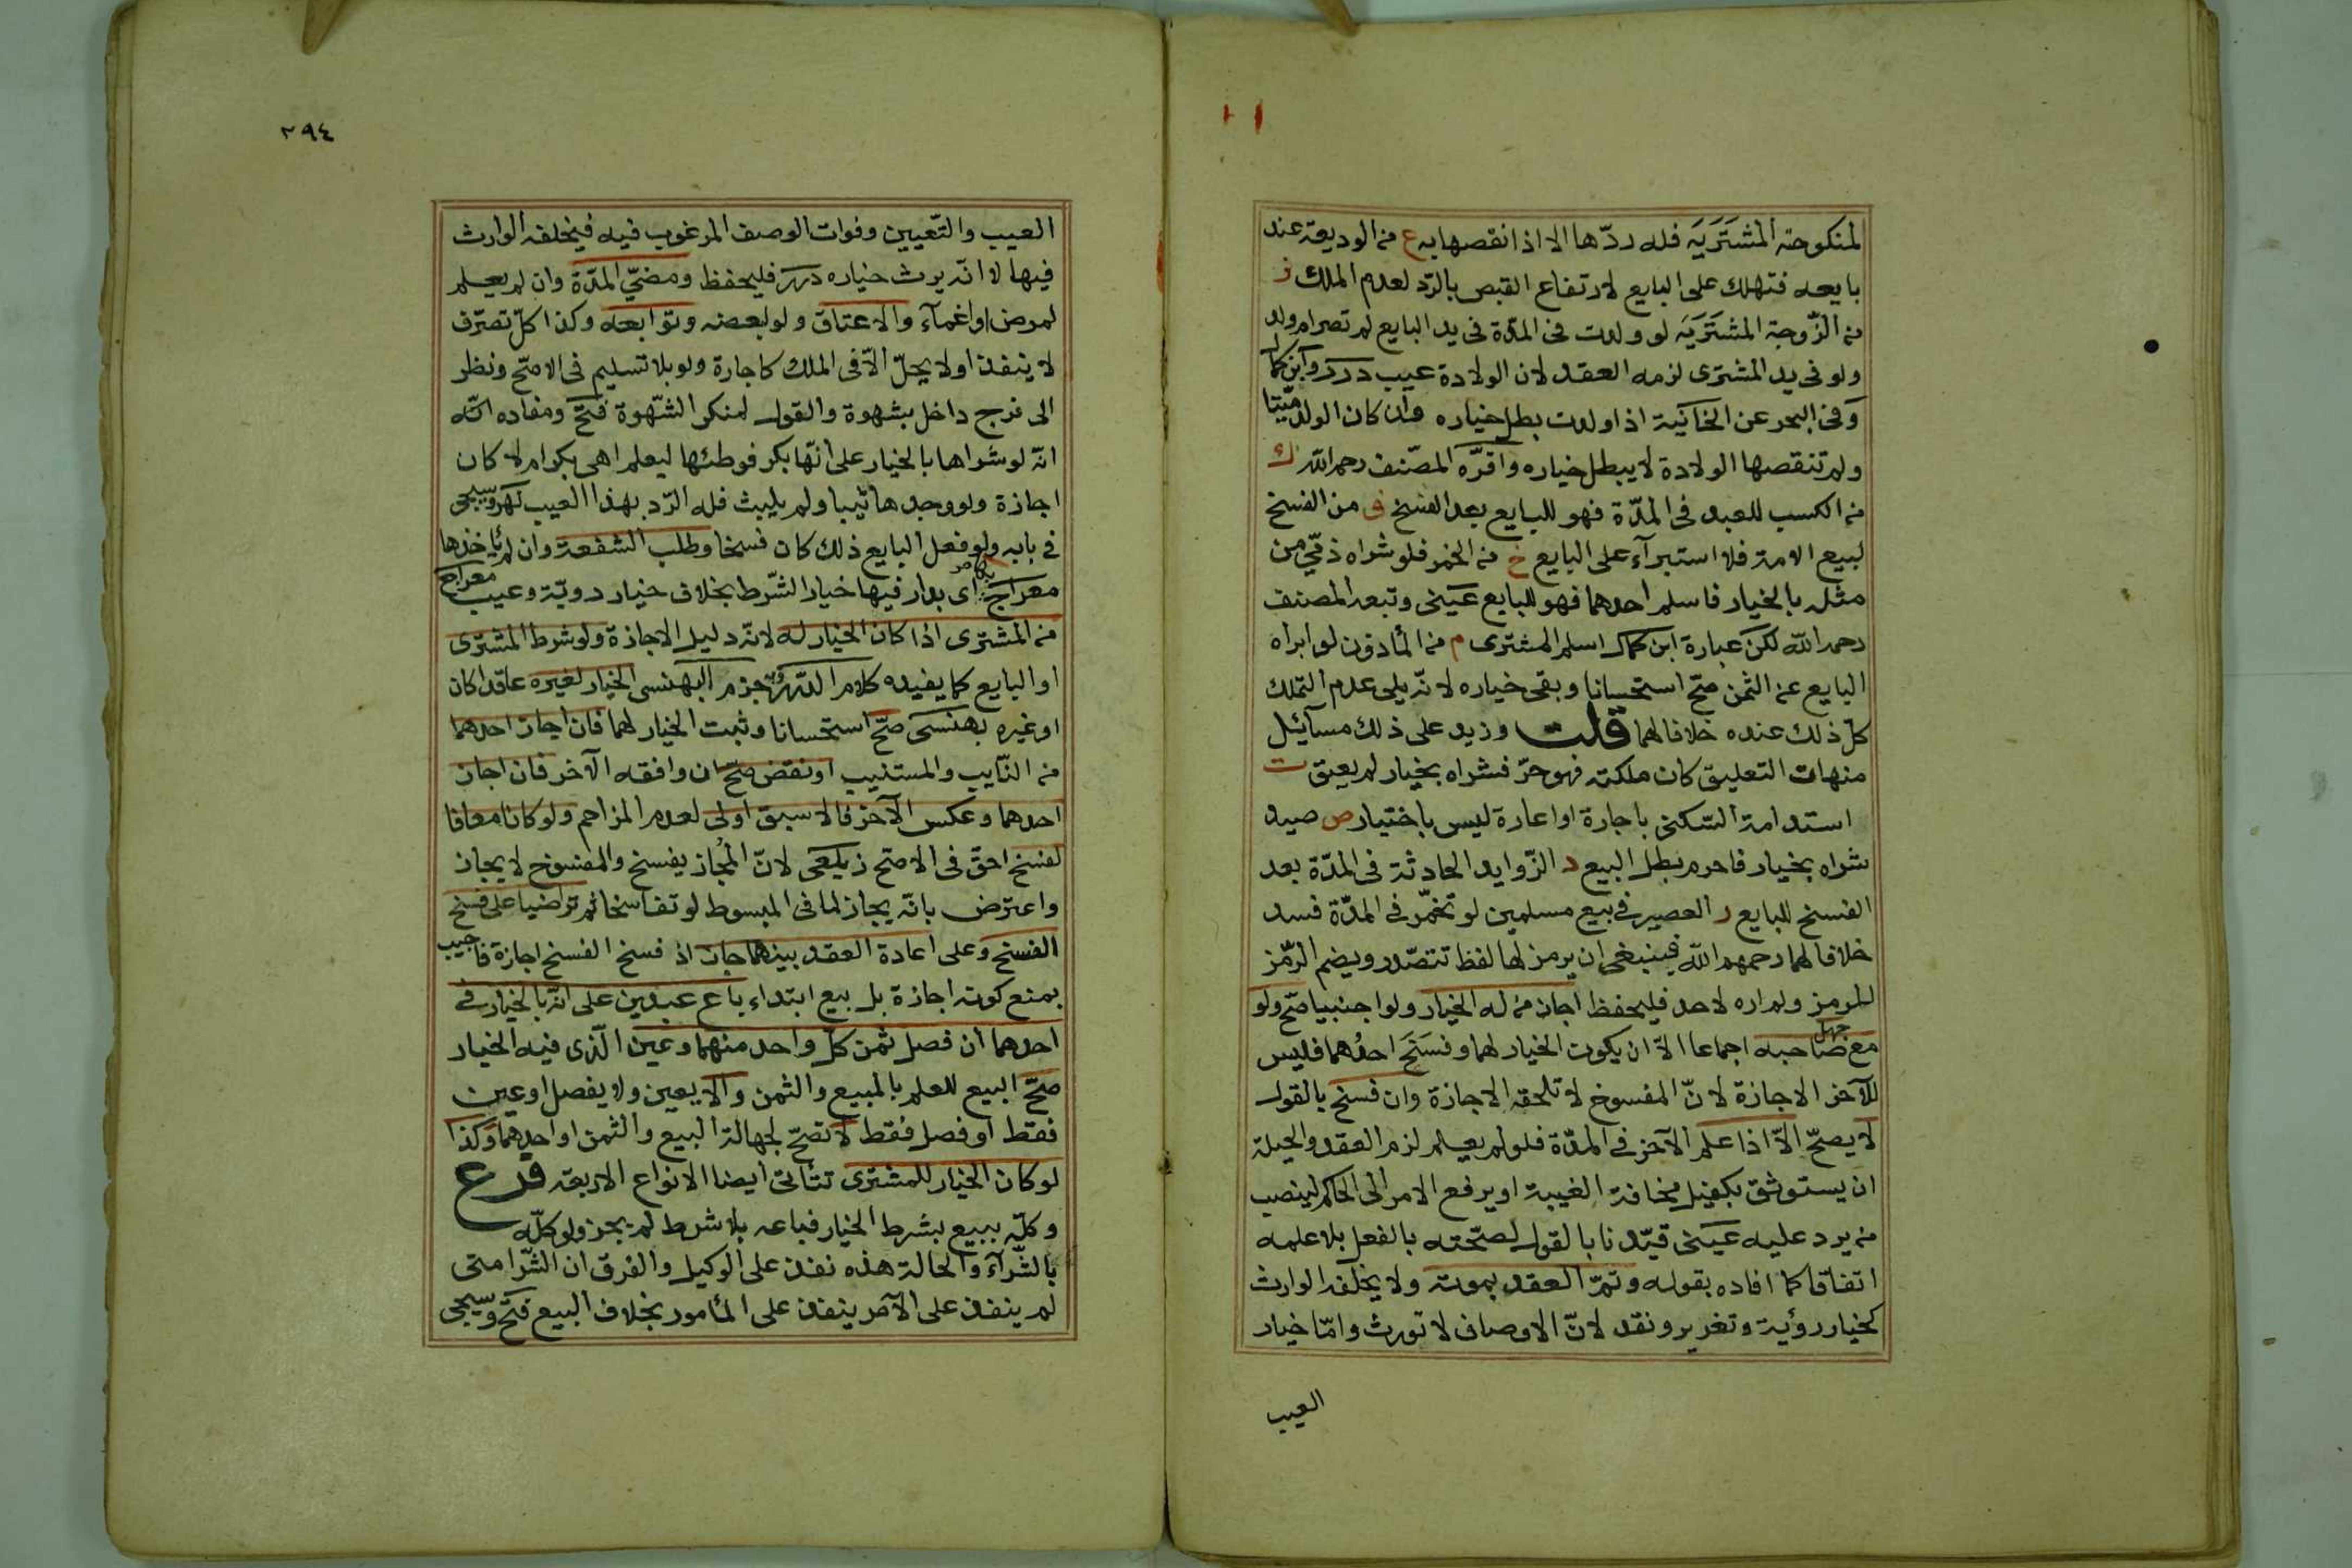 لمنكوحته المشتَرَيَه فله ردّها الا اذا نقصها به ع من الوديعة عند
بايعه فتهلك على البايع لارتفاع القبض بالرّد لعدم الملك ز
من الزّوجة المشتَرَيَه لو ولدت فى المدّة فى يد البايع لم تصر ام ولد
ولو فى يد المشترى لزمه العقد لان الولادة عيب درر وابن كمال
وفى البحر عن الخانية اذا ولدت بطل خياره وان كان الولد ميّتا
ولم تنقصها الولادة لا يبطل خياره واقرّه المصّنف رحمه الله ك
من الكسب للعبد فى المدّة فهو للبايع بعد الفسخ ف من الفسخ
لبيع الامة فلا استبرآء على البايع خ من الخمر فلو شراه ذمّي من
مثله بالخيار فاسلم احدهما فهو للبايع عينى وتبعه المصنف
رحمه الله لكن عبارة ابن كمال اسلم المشترى م من المأذون لو ابراه
البايع عن الثمن صّح استحسانا وبقى خياره لانّه يلى عدم التملك
كلّ ذلك عنده خلافا لهما قلت وزيد على ذلك مسآئيل
منها ت التعليق كان ملكته فهو حرّ فشراه بخيار لم يعتق ت
استدامة السّكنى باجارة او اعارة ليس باختيار ص صيد
شراه بخيار فاحرم بطل البيع د الزّوايد الحادثة فى المدّة بعد
الفسخ للبايع ر العصير فى بيع مسلمين لو تخمّر فى المدّة فسد
خلافا لهما رحمهم الله فينبغى ان يرمز لها لفظ تتصّدر ويضم الرّمز
للرمز ولم اره لاحد فليحفظ اجاز من له الخيار ولو اجنبيا صّح ولو
مع جهل صاحبه اجماعا الاّ ان يكون الخيار لهما وفسَخَ احدُهما فليس
للآخر الاجازة لانّ المفسوخ لا تلحقه الاجازة وان فسخ بالقول
لا يصحّ الاّ اذا علم الآخر فى المدّة فلو لم يعلم لزم العقد والحيلة
ان يستوثق بكفيل مخافة الغيبة او يرفع الامر الى الحاكم لينصب
من يرد عليه عينى قيّدنا بالقول لصّحته بالفعل بلا علمه
اتفاقا كما افاده بقوله وتمّ العقد بموته ولا يخلفه الوارث
كخيار رؤية وتغرير ونقد لانّ الاوصاف لا تورث وامّا خيار
العيب
٢٩٤
العيب والتّعيين وفوات الوصف المرغوب فيه فيخلفه الوارث
فيها لا انّه يرث خياره درر فليحفظ ومضيّ المدّة وان لم يعلم
لمرض او اغمآء والاعتاق ولو لبعضه وتوابعه وكذا كلّ تصرّف
لا ينفذ او لا يحلّ الاّ فى الملك كاجارة ولو بلا تسليم فى الاصّح ونظر
الى فرج داخل بشهوة والقول لمنكر الشّهوة فتح ومفاده انّه
انّه لو شراها بالخيار على انّها بكر فوطئها ليعلم اهى بكر ام لا كان
اجازة ولو وجدها ثيبا ولم يلبث فله الرّد بهذا العيب نهر وسيجى
فى بابه ولو فعل البايع ذلك كان فسخا وطلب الشفعة وان لم يأخذها
معراج اى بدار فيها خيار الشّرط بخلاف خيار رويّة وعيب معراج
من المشترى اذا كان الخيار له لانّه دليل الاجازة ولو شرط المشترى
او البايع كما يفيده كلام الدّرر وبه جزم البهنسى الخيار لغيره عاقدا كان
او غيره بهنسى صّح استحسانا وثبت الخيار لهما فان اجاز احدهما
من النّايب والمستنيب او نقض صّح ان وافقه الآخر فان اجاز
احدهما وعكس الآخر فالاسبق اولى لعدم المزاحم ولو كانا معا فا
لفسخ احقّ فى الاصّح زيلعى لانّ المُجاز يفسخ والمفسوخ لا يجاز
واعترض بانّه يجاز لما فى المبسوط لو تفاسخا ثم تراضيا على فسخ
الفسخ وعلى اعادة العقد بينهما جاز اذ فسخ الفسخ اجازة فاجيب
بمنع كونه اجازة بل بيع ابتداء باع عبدين على انّه بالخيار فى
احدهما ان فصل ثمن كلّ واحد منهما وعين الّذى فيه الخيار
صحّ البيع للعلم بالمبيع والثمن والا يعين ولا يفصل او عين
فقط او فصل فقط لا تصحّ لجهالة البيع والثمن او احدهما وكذا
لو كان الخيار للمشترى تتأتى ايضا الانواع الاربعة فرع
وكلّه ببيع بشرط الخيار فباعه بلا شرط لم يجز ولو كلّه
بالشّرآء والحالة هذه نفذ على الوكيل والفرق ان الشّرا متى
لم ينفذ على الآمر ينفذ على المأمور بخلاف البيع فتح وسيجى